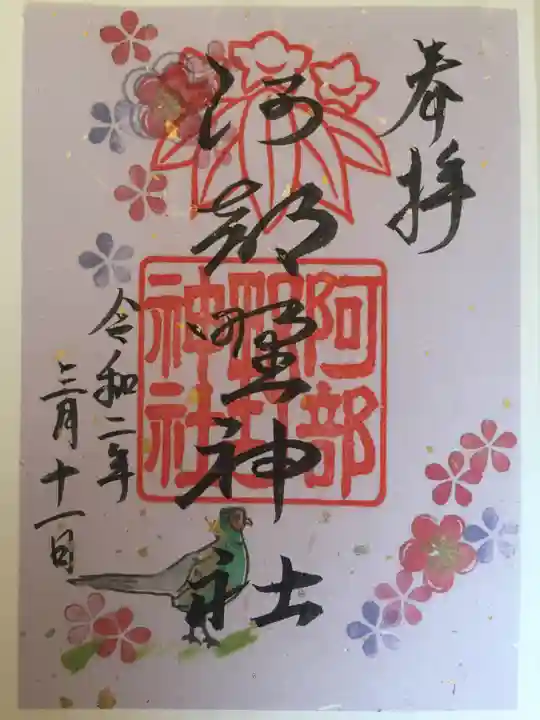 奉拝
阿部野神社
阿部野神社
令和二年
三月十一日